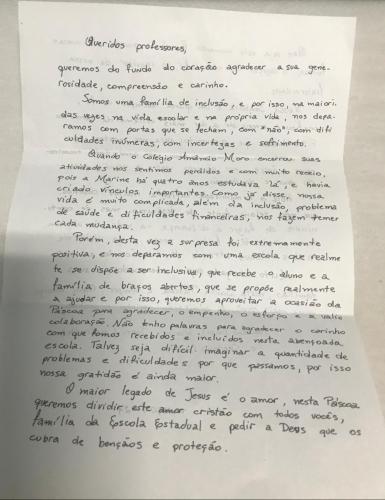 Queridos professores,
queremos do fundo do coração agradecer a sua gene-
rosidade, compreensão e carinho.
Somos uma família de inclusão, e por isso, na maiori-
das vezes na vida escolar e na própria vida, nos depa-
ramos com portas que se fecham, com "não", com difi
culdades inúmeras, com incertezas e sofrimento.
Quando o Colégio Amâncio Moro encerrou suas
atividades nos sentimos perdidos e com muito receio,
pois a Marine há quatro anos estudava lá, e havia
criado vínculos importantes. Como já disse, nossa
vida é muito complicada, além da inclusão, problema
de saúde e dificuldades financeiras, nos fazem temer
cada mudança.
Porém, desta vez a surpresa foi extremamente
positiva, e nos deparamos com uma escola que realme
te se dispõe a ser inclusiva, que recebe o aluno e a
família de braços abertos, que se propõe realmente
a ajudar e por isso, queremos aproveitar a ocasião da
Páscoa para agradecer, o empenho, o esforço e a valio
colaboração. Não tenho palavras para agradecer o carinho
com que fomos recebidos e incluídos nesta abençoada
escola. Talvez seja difícil imaginar a quantidade de
problemas e dificuldades por que passamos, por isso
nossa gratidão é ainda maior.
O maior legado de Jesus é o amor, nesta Páscoa
queremos dividir este amor cristão com todos vocês,
família da Escola Estadual e pedir a Deus que os
cubra de bençãos e proteção.